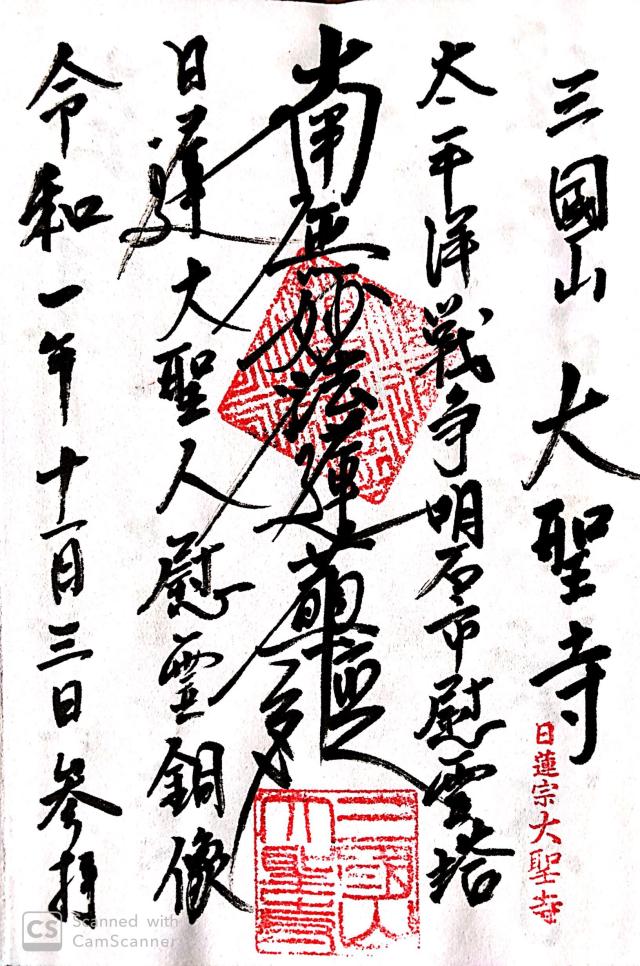 三國山 大聖寺
日蓮宗大聖寺
太平洋戦争明石市慰霊塔
南無妙法蓮華経
日蓮大聖人慰霊銅像
令和一年十一月三日参拝
三國山大聖寺
CS Scanned with
CamScanner